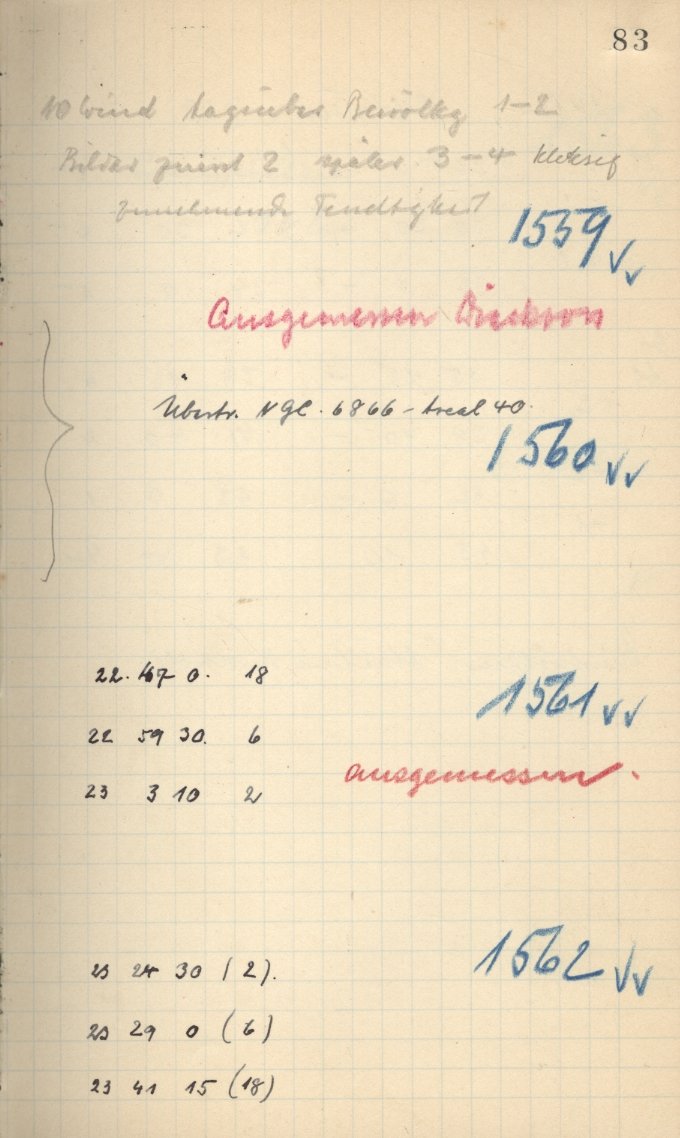 83
10 Wind tagsüber Bewölkg 1-2
Bilder zuerst 2 später 3-4
zunehmende
1559 √√
Ausgemessen
Übertr. NGC. 6866 - Areal 40.
1560 √√
22. 47 0. 18
1561 √√
22 59 30. 6
ausgemessen.
23 3 10 2
1562 √√
23 24 30 (2).
23 29 0 (6)
23 41 15 (18)